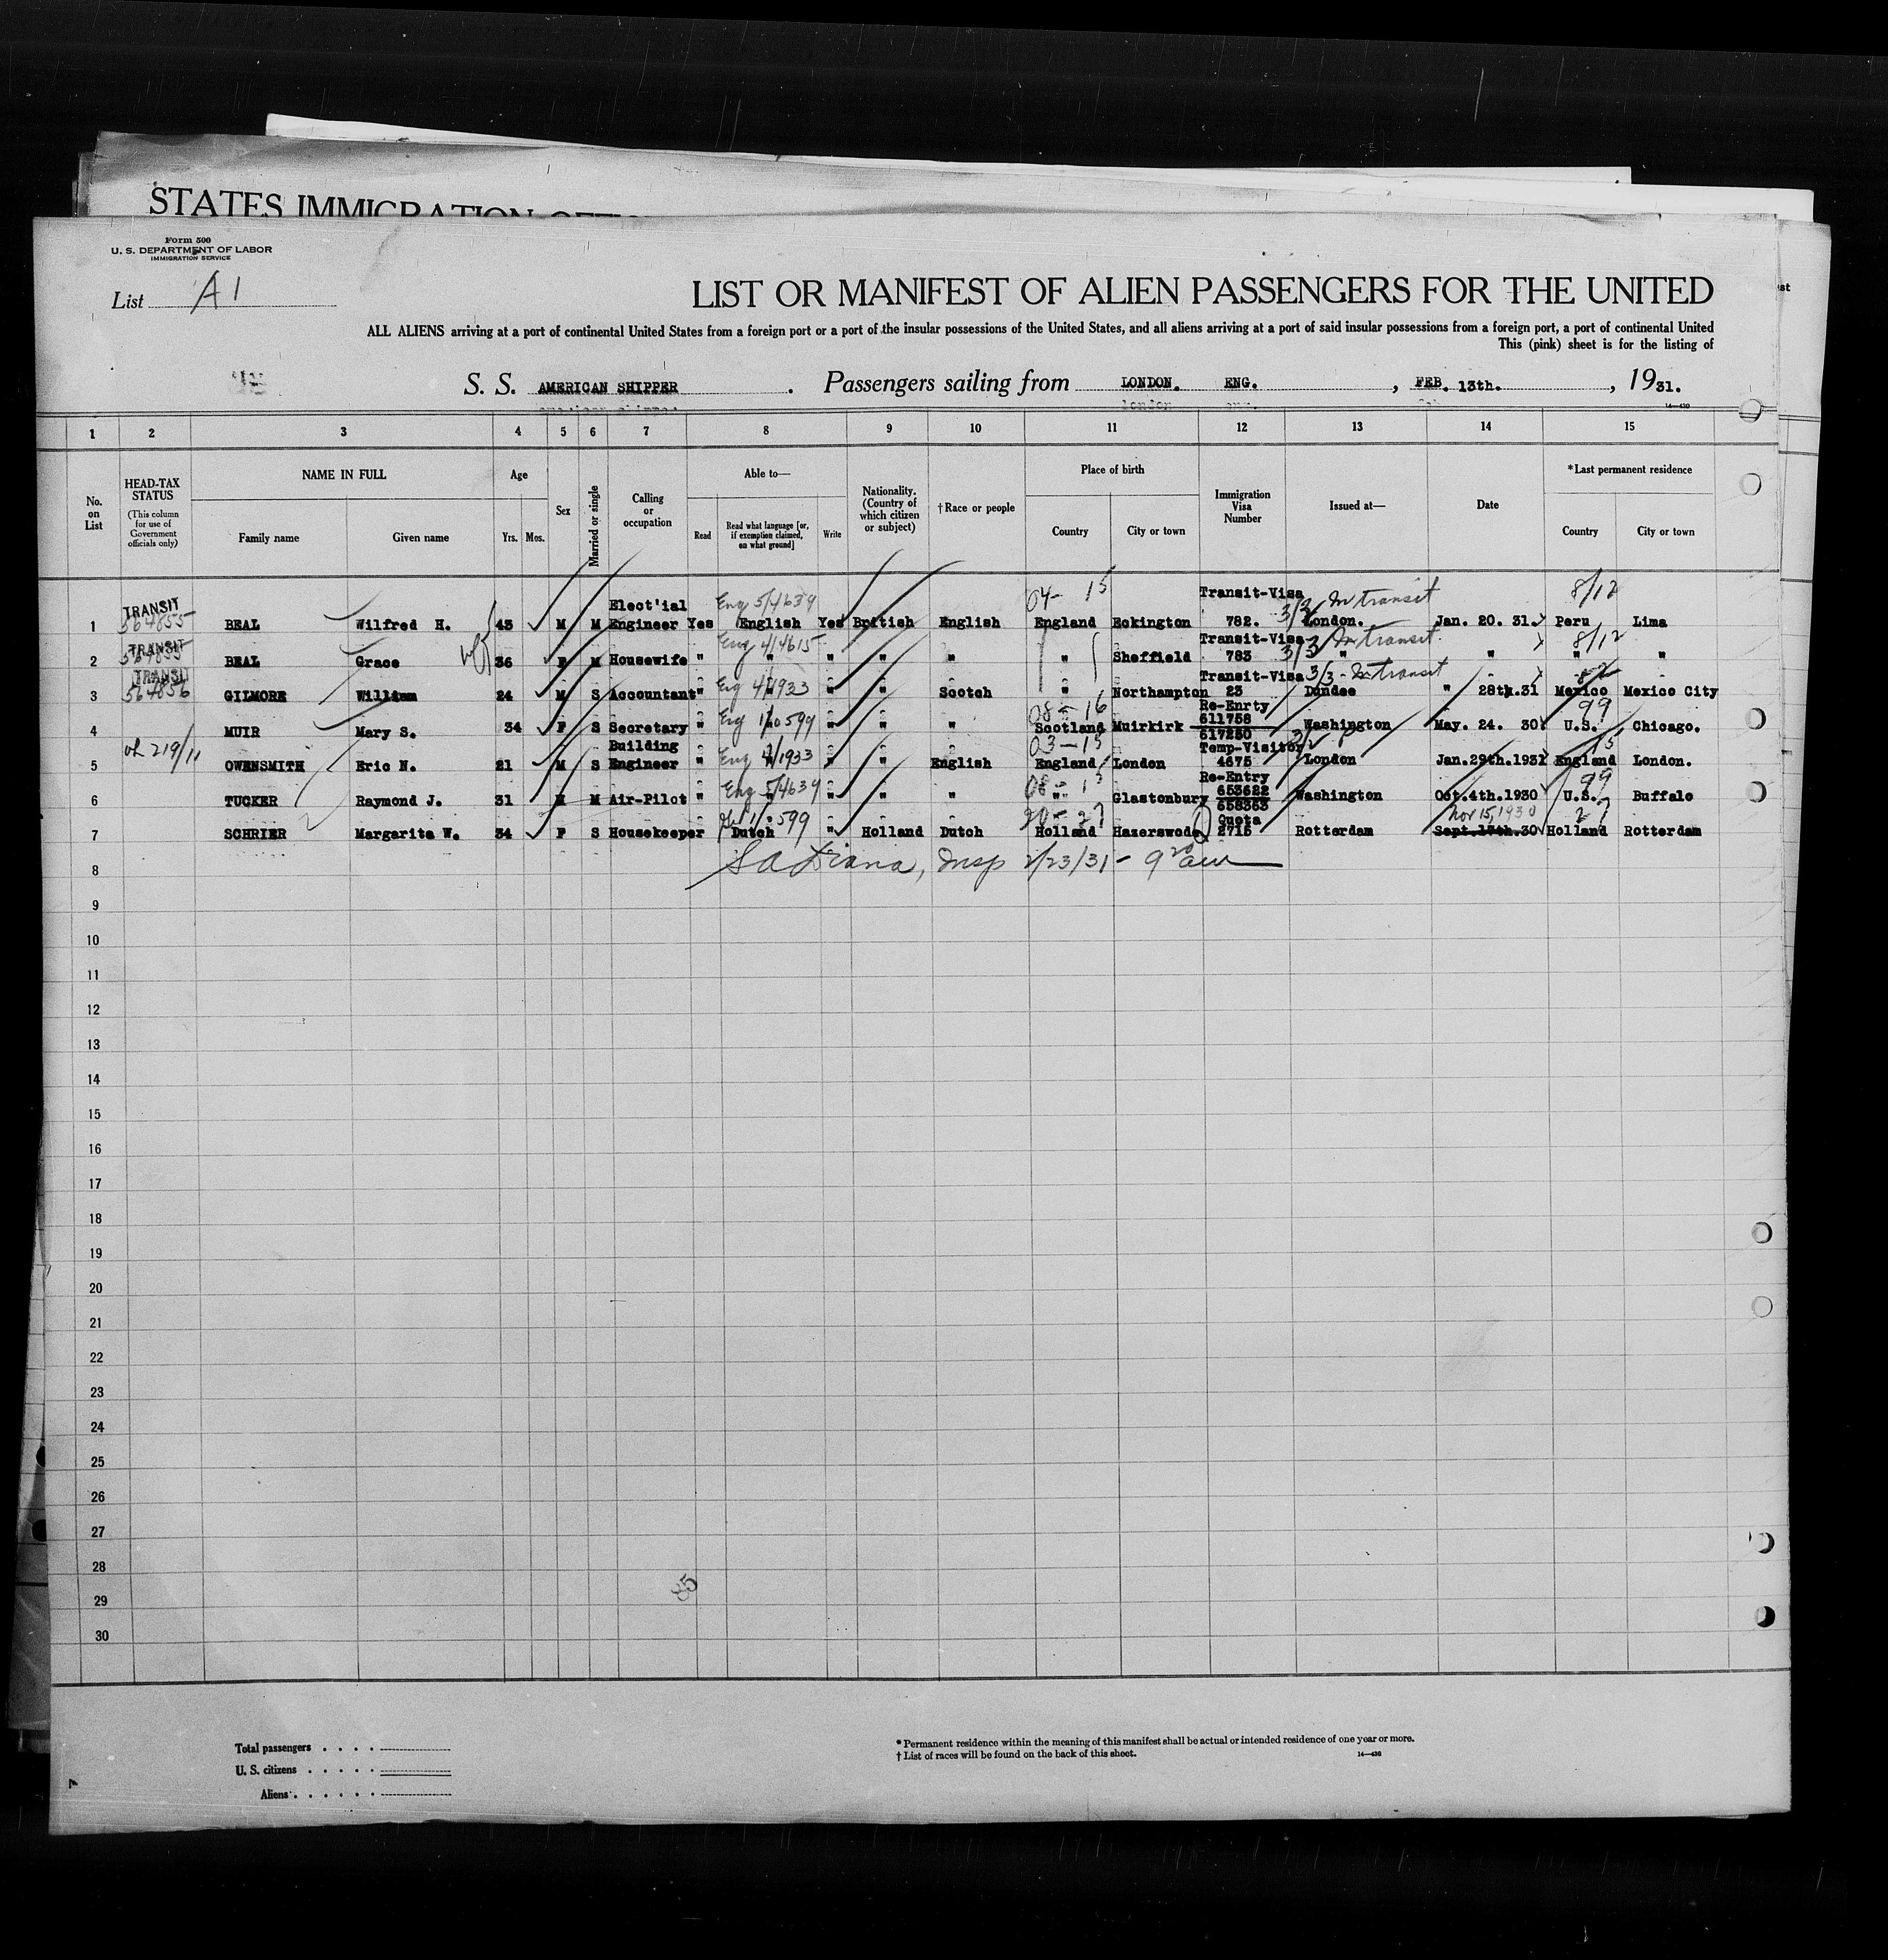 STATES IMMIGRATION
Form 500
U. S. DEPARTMENT OF LABOR
IMMIGRATION SERVICE
List A1
LIST OR MANIFEST OF ALIEN PASSENGERS FOR THE UNITED
ALL ALIENS arriving at a port of continental United States from a foreign port or a port of the insular possessions of the United States, and all aliens arriving at a port of said insular possessions from a foreign port, a port of continental United
This (pink) sheet is for the listing of
S. S. AMERICAN SHIPPER . Passengers sailing from LONDON. ENG. , FEB. 13th. , 1931.
14—430
1 2 3 4 5 6 7 8 9 10 11 12 13 14 15
No. on List
HEAD-TAX STATUS (This column for use of Government officials only)
NAME IN FULL
Family name Given name
Age
Yrs. Mos.
Sex
Married or single
Calling or occupation
Able to—
Read Read what language [or, if exemption claimed, on what ground] Write
Nationality. (Country of which citizen or subject)
†Race or people
Place of birth
Country City or town
Immigration Visa Number
Issued at—
Date
*Last permanent residence
Country City or town
TRANSIT Elect'ial Eng 5/4639 04- 15 Transit-Visa 3/3 In transit 8/12
1 564855 BEAL Wilfred H. 45 M M Engineer Yes English Yes British English England Eckington 782. London. Jan. 20. 31. Peru Lima
TRANSIT Eng 4/4615 Transit-Visa 3/3 In transit 8/12
2 564855 BEAL Grace 36 F M Housewife " " " " " " Sheffield 783 " " " "
TRANSIT Eng 4/1933 Transit-Visa 3/3 - In transit
3 564856 GILMORE William 24 M S Accountant " " " " Scotch " Northampton 23 Dundee " 28th.31 Mexico Mexico City
Eng 1/0599 08-16 Re-Enrty 611758 99
4 MUIR Mary S. 34 F S Secretary " " " " " Scotland Muirkirk 617250 Washington May. 24. 30. U.S. Chicago.
219/11 Building Eng 1/1933 03-15 Temp-Visitor 15
5 OWENSMITH Eric N. 21 M S Engineer " " " " English England London 4675 London Jan.29th.1931 England London.
Eng 5/4639 08-15 Re-Entry 653622 99
6 TUCKER Raymond J. 31 M M Air-Pilot " " " " " " Glastonbury 658363 Washington Oct.4th.1930 U.S. Buffalo
20-27 Quota Nov 15, 1930 27
7 SCHRIER Margarita W. 34 F S Housekeeper " Dutch " Holland Dutch Holland Hazerswode 2715 Rotterdam Sept.17th.30 Holland Rotterdam
Insp 2/23/31 - 9 20 am
8
9
10
11
12
13
14
15
16
17
18
19
20
21
22
23
24
25
26
27
28
29
30
Total passengers . . . .
U. S. citizens . . . . .
Aliens . . . . . .
* Permanent residence within the meaning of this manifest shall be actual or intended residence of one year or more.
† List of races will be found on the back of this sheet.
14—430